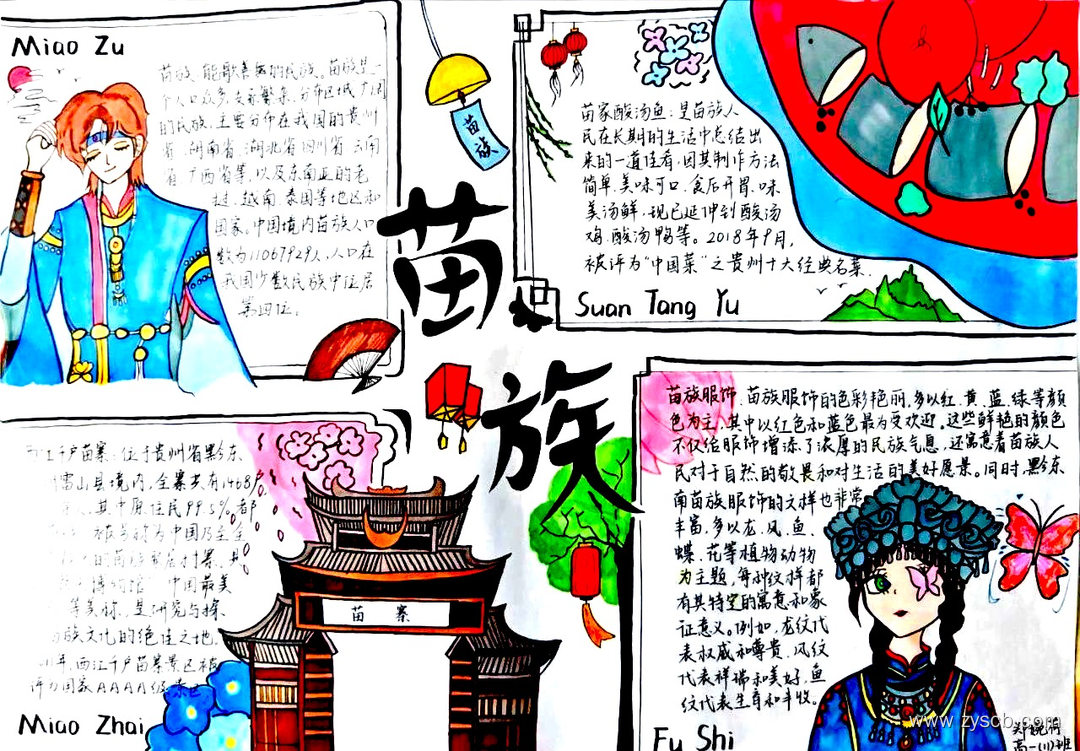 Miao Zu
苗族,能歌善舞的民族。苗族是一
个人口众多,支系繁杂,分布区域广阔
的民族,主要分布在我国的贵州
省,湖南省,湖北省,四川省,云南
省,广西省等,以及东南亚的老
挝,越南,泰国等地区和
国家。中国境内苗族人口
数为11067929人,人口在
我国少数民族中位居
第四位。
苗族
苗家酸汤鱼:是苗族人
民在长期的生活中总结出
来的一道佳肴,因其制作方法
简单,美味可口,食后开胃,味
美汤鲜,现已延伸到酸汤
鸡,酸汤鸭等。2018年9月,
被评为"中国菜"之贵州十大经典名菜.
Suan Tang Yu
苗
族
江千户苗寨,位于贵州省黔东
雷山县境内,全寨共有1468户
人,其中原住民99.5%,都
为中国乃至全
博物馆"中国最美
等美称,是研究与探
族文化的绝佳之地.
年,西江千户苗寨景区被
评为国家AAAA级景区
Miao Zhai
苗寨
苗族服饰,苗族服饰的色彩艳丽,多以红、黄、蓝、绿等颜
色为主,其中以红色和蓝色最为受欢迎,这些鲜艳的颜色
不仅给服饰增添了浓厚的民族气息,还寓意着苗族人
民对于自然的敬畏和对生活的美好愿景。同时,黔东
南苗族服饰的文样也非常
丰富,多以龙、凤、鱼、
蝶、花等植物动物
为主题,每种纹样都
有其特定的寓意和象
征意义。例如,龙纹代
表权威和尊贵,凤纹
代表祥瑞和美好,鱼
纹代表生育和丰收。
Fu Shi
www.zyscb.com
高一(1)班